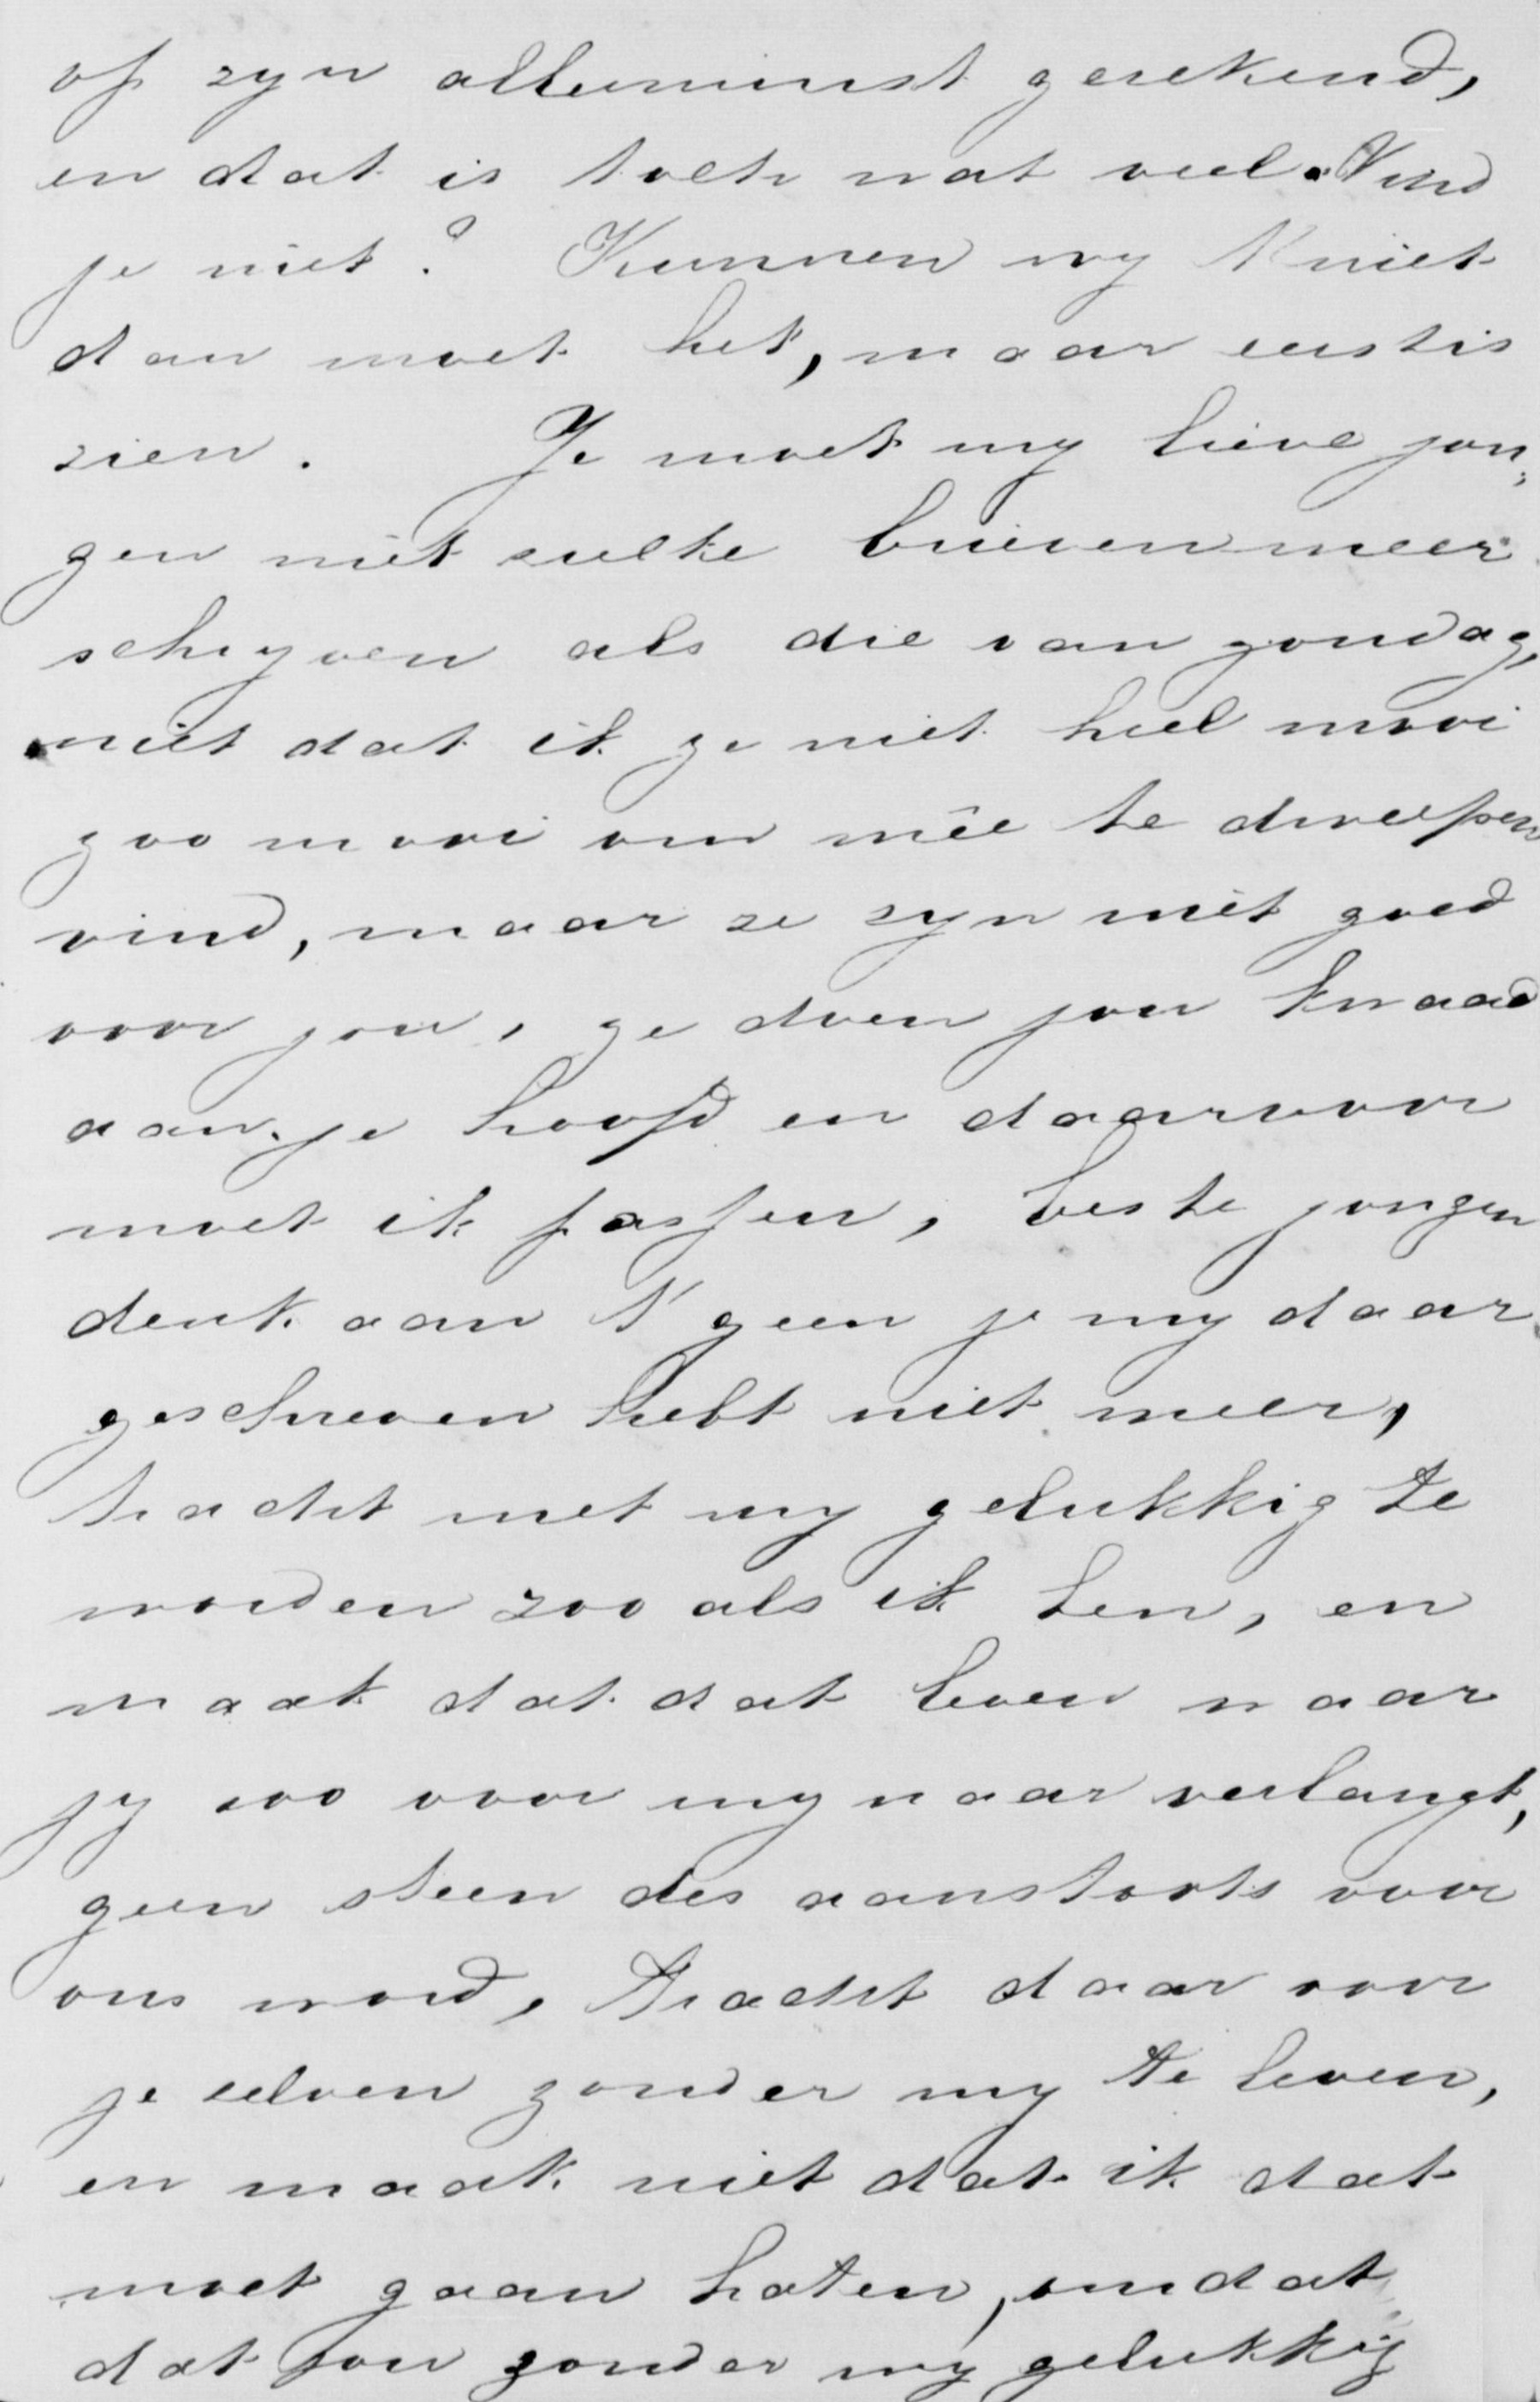 op zyn alleminst gerekend,
en dat is toch wat veel. Vind
je niet? Kunnen wy 't niet
dan moet het, maar eerst is
zien. Je moet my lieve jon„
gen niet zulke brieven meer
schryven als die van zondag,
niet dat ik ze niet heel mooi
zoo mooi om mêe te dweepen
vind, maar ze zyn niet goed
voor jou, ze doen jou kwaad
aan je hoofd en daarvoor
moet ik passen, beste jongen
denk aan 't geen je my daar
geschreven hebt niet meer,
tracht met my gelukkig te
worden zoo als ik ben, en
maak dat dat leven waar
jy zoo voor my naar verlangt,
geen steen des aanstoots voor
ons word, tracht daar voor
je zelven zonder my te leven,
en maak niet dat ik dat
moet gaan haten, omdat
dat jou zonder my gelukkig